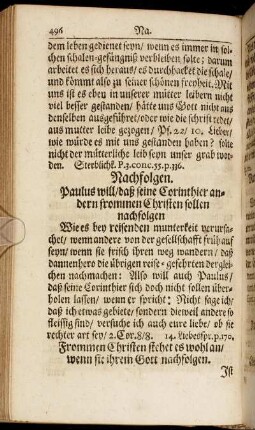 496 Na.
dem leben gedienet seyn/ wenn es immer in sol-
chen schalen-gefängniß verbleiben solte; darum
arbeitet es sich heraus/ es durchbacket die schale/
und kömmt also zu seiner schönen freyheit. Mit
uns ist es eben in unserer mütter leibern nicht
viel besser gestanden/ hätte uns Gott nicht aus
denselben ausgeführet/ oder wie die schrift redet/
aus mutter leibe gezogen/ Pf. 22/ 10. Lieber/
wie würde es mit uns gestanden haben? solte
nicht der mütterliche leib seyn unser grab wor-
den. Sterblichk. P. 3. conc. 55. p. 336.
Nachfolgen.
Paulus will/ daß seine Corinthier an-
dern frommen Christen sollen
nachfolgen
Wie es bey reisenden munterkeit verursa-
chet/ wenn andere von der gesellschafft frühauf
seyn/ wenn sie frisch ihren weg wandern/ daß
dannenhero die übrigen reise-gefehrten dergleі-
chen nachmachen: Also will auch Paulus/
daß seine Corinthier sich doch nicht sollen über-
holen lassen/ wenn er spricht: Nicht sage ich/
daß ich etwas gebiete/ sondern dieweil andere so
fleissig sind/ versuche ich auch eure liebe/ ob sie
rechter art sey/ 2. Cor. 8/8. 14. Liebesspr. p. 170.
Frommen Christen stehet es wohl an/
wenn sie ihrem Gott nachfolgen.
Ist